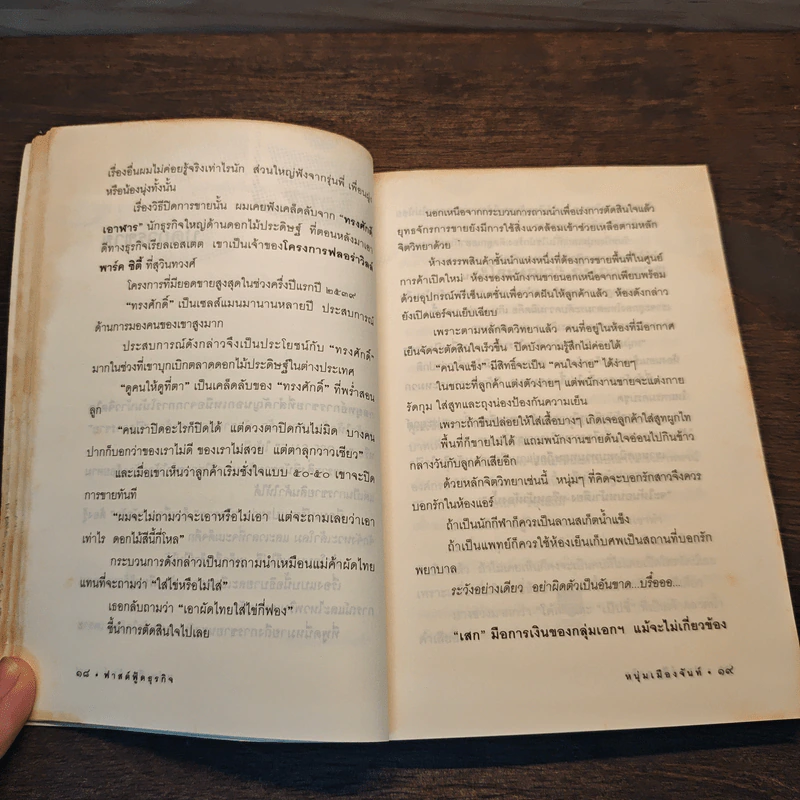 เรื่องอื่นผมไม่ค่อยรู้จริงเท่าไรนัก ส่วนใหญ่ฟังจากรุ่นพี่ เพื่อนฝูง
หรือน้องนุ่งทั้งนั้น
เรื่องวิธีปิดการขายนั้น ผมเคยฟังเคล็ดลับจาก "ทรงศักดิ์
เอาฬาร" นักธุรกิจใหญ่ด้านดอกไม้ประดิษฐ์ ที่ตอนหลังมาเอา
ดีทางธุรกิจเรียลเอสเตต เขาเป็นเจ้าของโครงการฟลอร่าวิลล์
พาร์ค ซิตี้ ที่สุวินทวงศ์
โครงการที่มียอดขายสูงสุดในช่วงครึ่งปีแรกปี ๒๕๓๙
"ทรงศักดิ์" เป็นเซลส์แมนมานานหลายปี ประสบการณ์
ด้านการมองคนของเขาสูงมาก
ประสบการณ์ดังกล่าวจึงเป็นประโยชน์กับ "ทรงศักดิ์"
มากในช่วงที่เขาบุกเบิกตลาดดอกไม้ประดิษฐ์ในต่างประเทศ
"ดูคนให้ดูที่ตา" เป็นเคล็ดลับของ "ทรงศักดิ์" ที่พร่ำสอน
ลูก
"คนเราปิดอะไรก็ปิดได้ แต่ดวงตาปิดกันไม่มิด บางคน
ปากก็บอกว่าของเราไม่ดี ของเราไม่สวย แต่ตาลุกวาวเชียว"
และเมื่อเขาเห็นว่าลูกค้าเริ่มชั่งใจแบบ ๕๐-๕๐ เขาจะปิด
การขายทันที
"ผมจะไม่ถามว่าจะเอาหรือไม่เอา แต่จะถามเลยว่าเอา
เท่าไร ดอกไม้สีนี้กี่โหล"
กระบวนการดังกล่าวเป็นการถามนำเหมือนแม่ค้าผัดไทย
แทนที่จะถามว่า "ใส่ไข่หรือไม่ใส่"
เธอกลับถามว่า "เอาผัดไทยใส่ไข่กี่ฟอง"
ชี้นำการตัดสินใจไปเลย
๑๘ • ฟาสต์ฟู้ดธุรกิจ
นอกเหนือจากกระบวนการถามนำเพื่อเร่งการตัดสินใจแล้ว
ยุทธจักรการขายยังมีการใช้สิ่งแวดล้อมเข้าช่วยเหลือตามหลัก
จิตวิทยาด้วย
ห้างสรรพสินค้าชั้นนำแห่งหนึ่งที่ต้องการขายพื้นที่ในศูนย์
การค้าเปิดใหม่ ห้องของพนักงานขายนอกเหนือจากเพียบพร้อม
ด้วยอุปกรณ์พรีเซ็นเตชั่นเพื่อวาดฝันให้ลูกค้าแล้ว ห้องดังกล่าว
ยังเปิดแอร์จนเย็นเฉียบ
เพราะตามหลักจิตวิทยาแล้ว คนที่อยู่ในห้องที่มีอากาศ
เย็นจัดจะตัดสินใจเร็วขึ้น ปิดบังความรู้สึกไม่ค่อยได้
"คนใจแข็ง" มีสิทธิ์จะเป็น "คนใจง่าย" ได้ง่ายๆ
ในขณะที่ลูกค้าแต่งตัวง่ายๆ แต่พนักงานขายจะแต่งกาย
รัดกุม ใส่สูทและถุงน่องป้องกันความเย็น
เพราะถ้าขืนปล่อยให้ใส่เสื้อบางๆ เกิดเจอลูกค้าใส่สูทผูกไท
พื้นที่ก็ขายไม่ได้ แถมพนักงานขายดันใจอ่อนไปกินข้าว
กลางวันกับลูกค้าเสียอีก
ด้วยหลักจิตวิทยาเช่นนี้ หนุ่มๆ ที่คิดจะบอกรักสาวจึงควร
บอกรักในห้องแอร์
ถ้าเป็นนักกีฬาก็ควรเป็นลานสเก็ตน้ำแข็ง
ถ้าเป็นแพทย์ก็ควรใช้ห้องเย็นเก็บศพเป็นสถานที่บอกรัก
พยาบาล
ระวังอย่างเดียว อย่าผิดตัวเป็นอันขาด...บรื๋อออ...
"เสก" มือการเงินของกลุ่มเอกฯ แม้จะไม่เกี่ยวข้อง
หนุ่มเมืองจันท์ • ๑๙